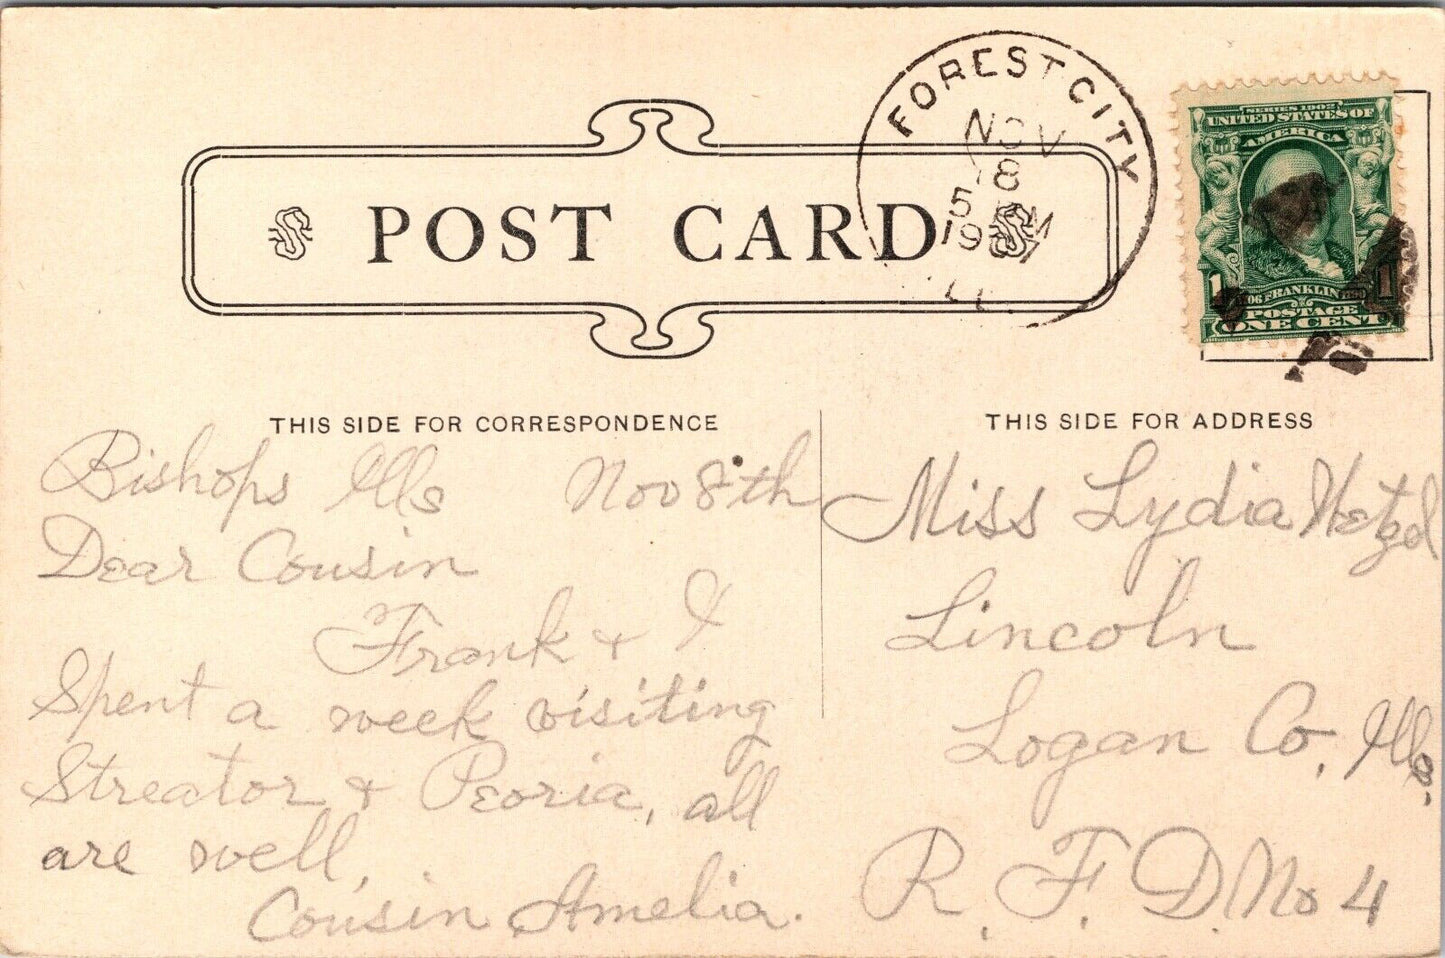 FOREST CITY
NOV
8
5 PM
1907
ILL
POST CARD
SERIES 1902
UNITED STATES OF
AMERICA
FRANKLIN
1 1
POSTAGE
ONE CENT
THIS SIDE FOR CORRESPONDENCE
Bishops Ills Nov 8th
Dear Cousin
Frank & I
Spent a week visiting
Streator & Peoria, all
are well,
Cousin Amelia.
THIS SIDE FOR ADDRESS
Miss Lydia Hetzel
Lincoln
Logan Co, Ills.
R. F. D. No 4